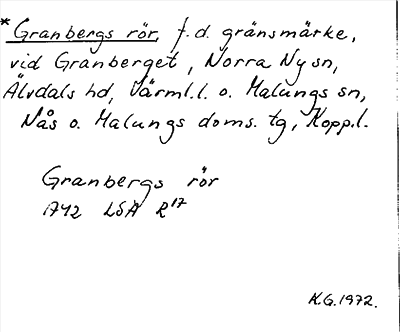 * Granbergs rör, f.d. gränsmärke,
vid Granberget, Norra Ny sn,
Älvdals hd, Värml.l. o. Malungs sn,
Nås o. Malungs doms. tg, Kopp.l.
Granbergs rör
1742 LSA R17
K.G.1972.